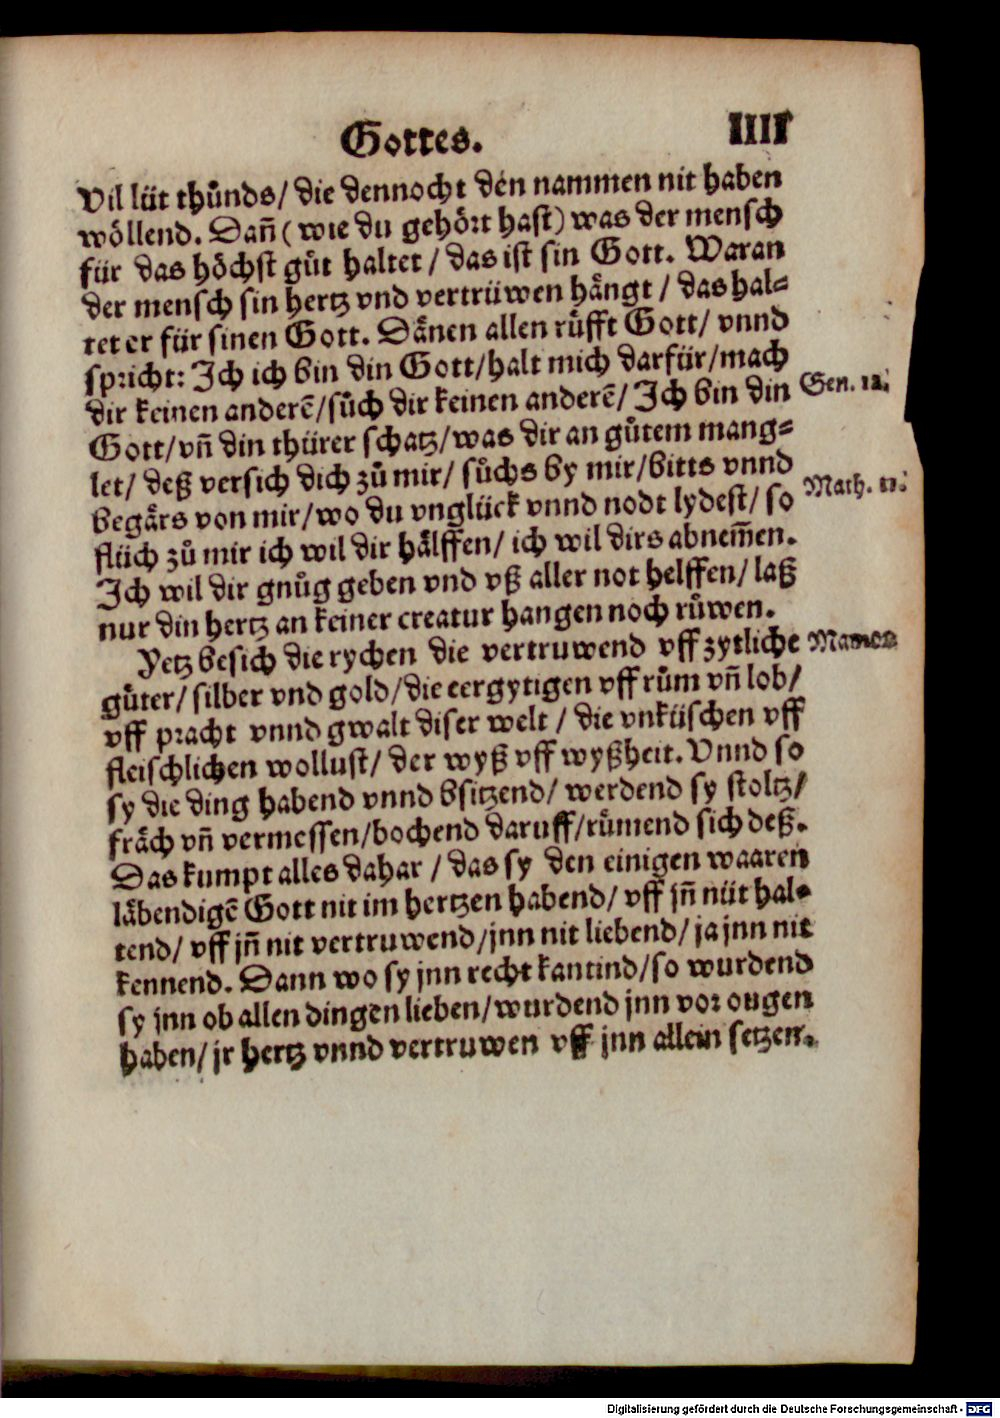 Gottes. IIII
Vil lüt thůnds/ die dennocht den nammen nit haben
wöllend. Dañ (wie du gehört hast) was der mensch
für das höchst gůt haltet / das ist sin Gott. Waran
der mensch sin hertz vnd vertrüwen hångt / das hal-
tet er für sinen Gott. Dånen allen růfft Gott/ vnnd
spricht: Ich ich bin din Gott/halt mich darfür/mach
dir keinen anderē/sůch dir keinen anderē/ Ich bin din
Gen. 12.
Gott/vñ din thürer schatz/was dir an gůtem mang-
let/ deß versich dich zů mir/ sůchs by mir/bitts vnnd
begårs von mir/wo du vnglück vnnd nodt lydest/ so
Math. 11.
flüch zů mir ich wil dir hålffen/ ich wil dirs abnem̄en.
Ich wil dir gnůg geben vnd vß aller not helffen/ laß
nur din hertz an keiner creatur hangen noch růwen.
Yetz besich die rychen die vertruwend vff zytliche
Mamon
gůter/ silber vnd gold/die eergytigen vff rům vñ lob/
vff pracht vnnd gwalt diser welt / die vnküschen vff
fleischlichen wollust/ der wyß vff wyßheit. Vnnd so
sy die ding habend vnnd bsitzend/ werdend sy stoltz/
fråch vñ vermessen/bochend daruff/růmend sich deß.
Das kumpt alles dahar / das sy den einigen waaren
låbendigē Gott nit im hertzen habend/ vff jñ nüt hal-
tend/ vff jñ nit vertruwend/jnn nit liebend/ ja jnn nit
kennend. Dann wo sy jnn recht kantind/so wurdend
sy jnn ob allen dingen lieben/wurdend jnn vor ougen
haben/ jr hertz vnnd vertruwen vff jnn allein setzen.
Digitalisierung gefördert durch die Deutsche Forschungsgemeinschaft - DFG